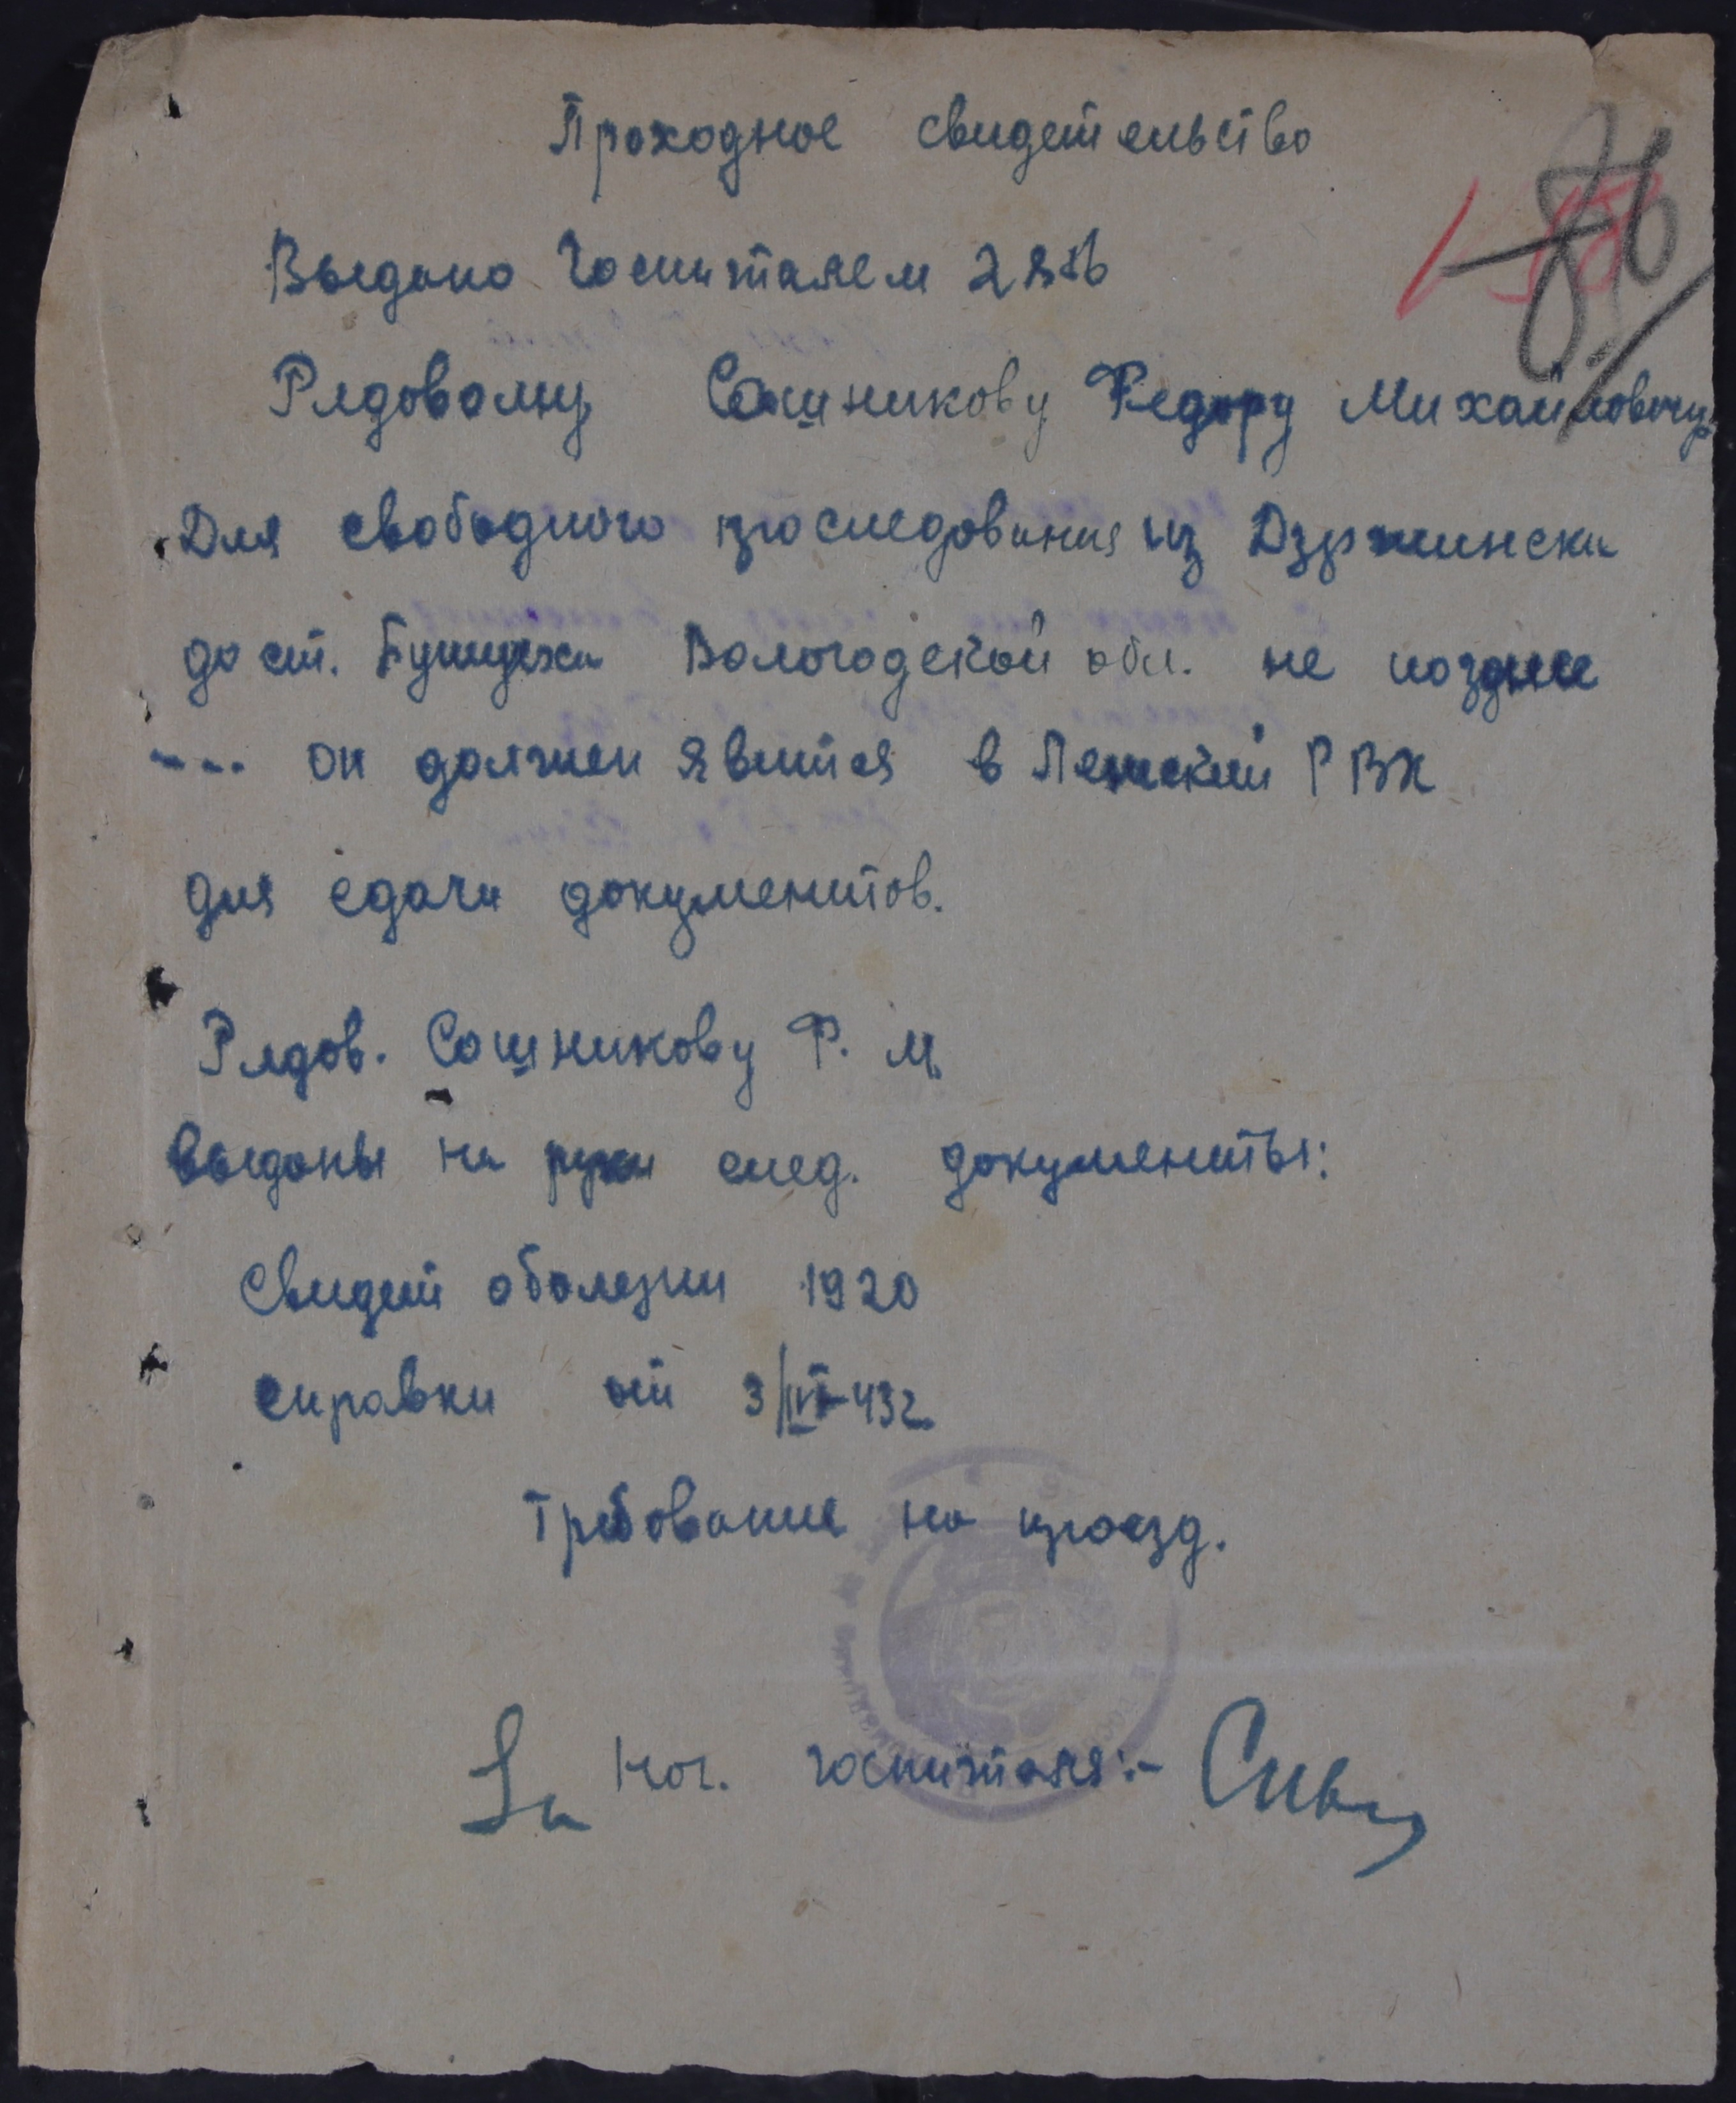 Проходное свидетельство
Выдано Госпиталем 2856
Рядовому Сошникову Федору Михайловичу
Для свободного проследования из Дзржинска
до ст. Бушуиха Вологодской обл. не позднее
--- он должен явится в Ленский РВК
для сдачи документов.
Рядов. Сошникову Ф. М.
выданы на руки след. документы:
Свидет оболезни 1920
справки от 3/IVI-43г.
Требование на проезд.
Нач. госпиталя:-